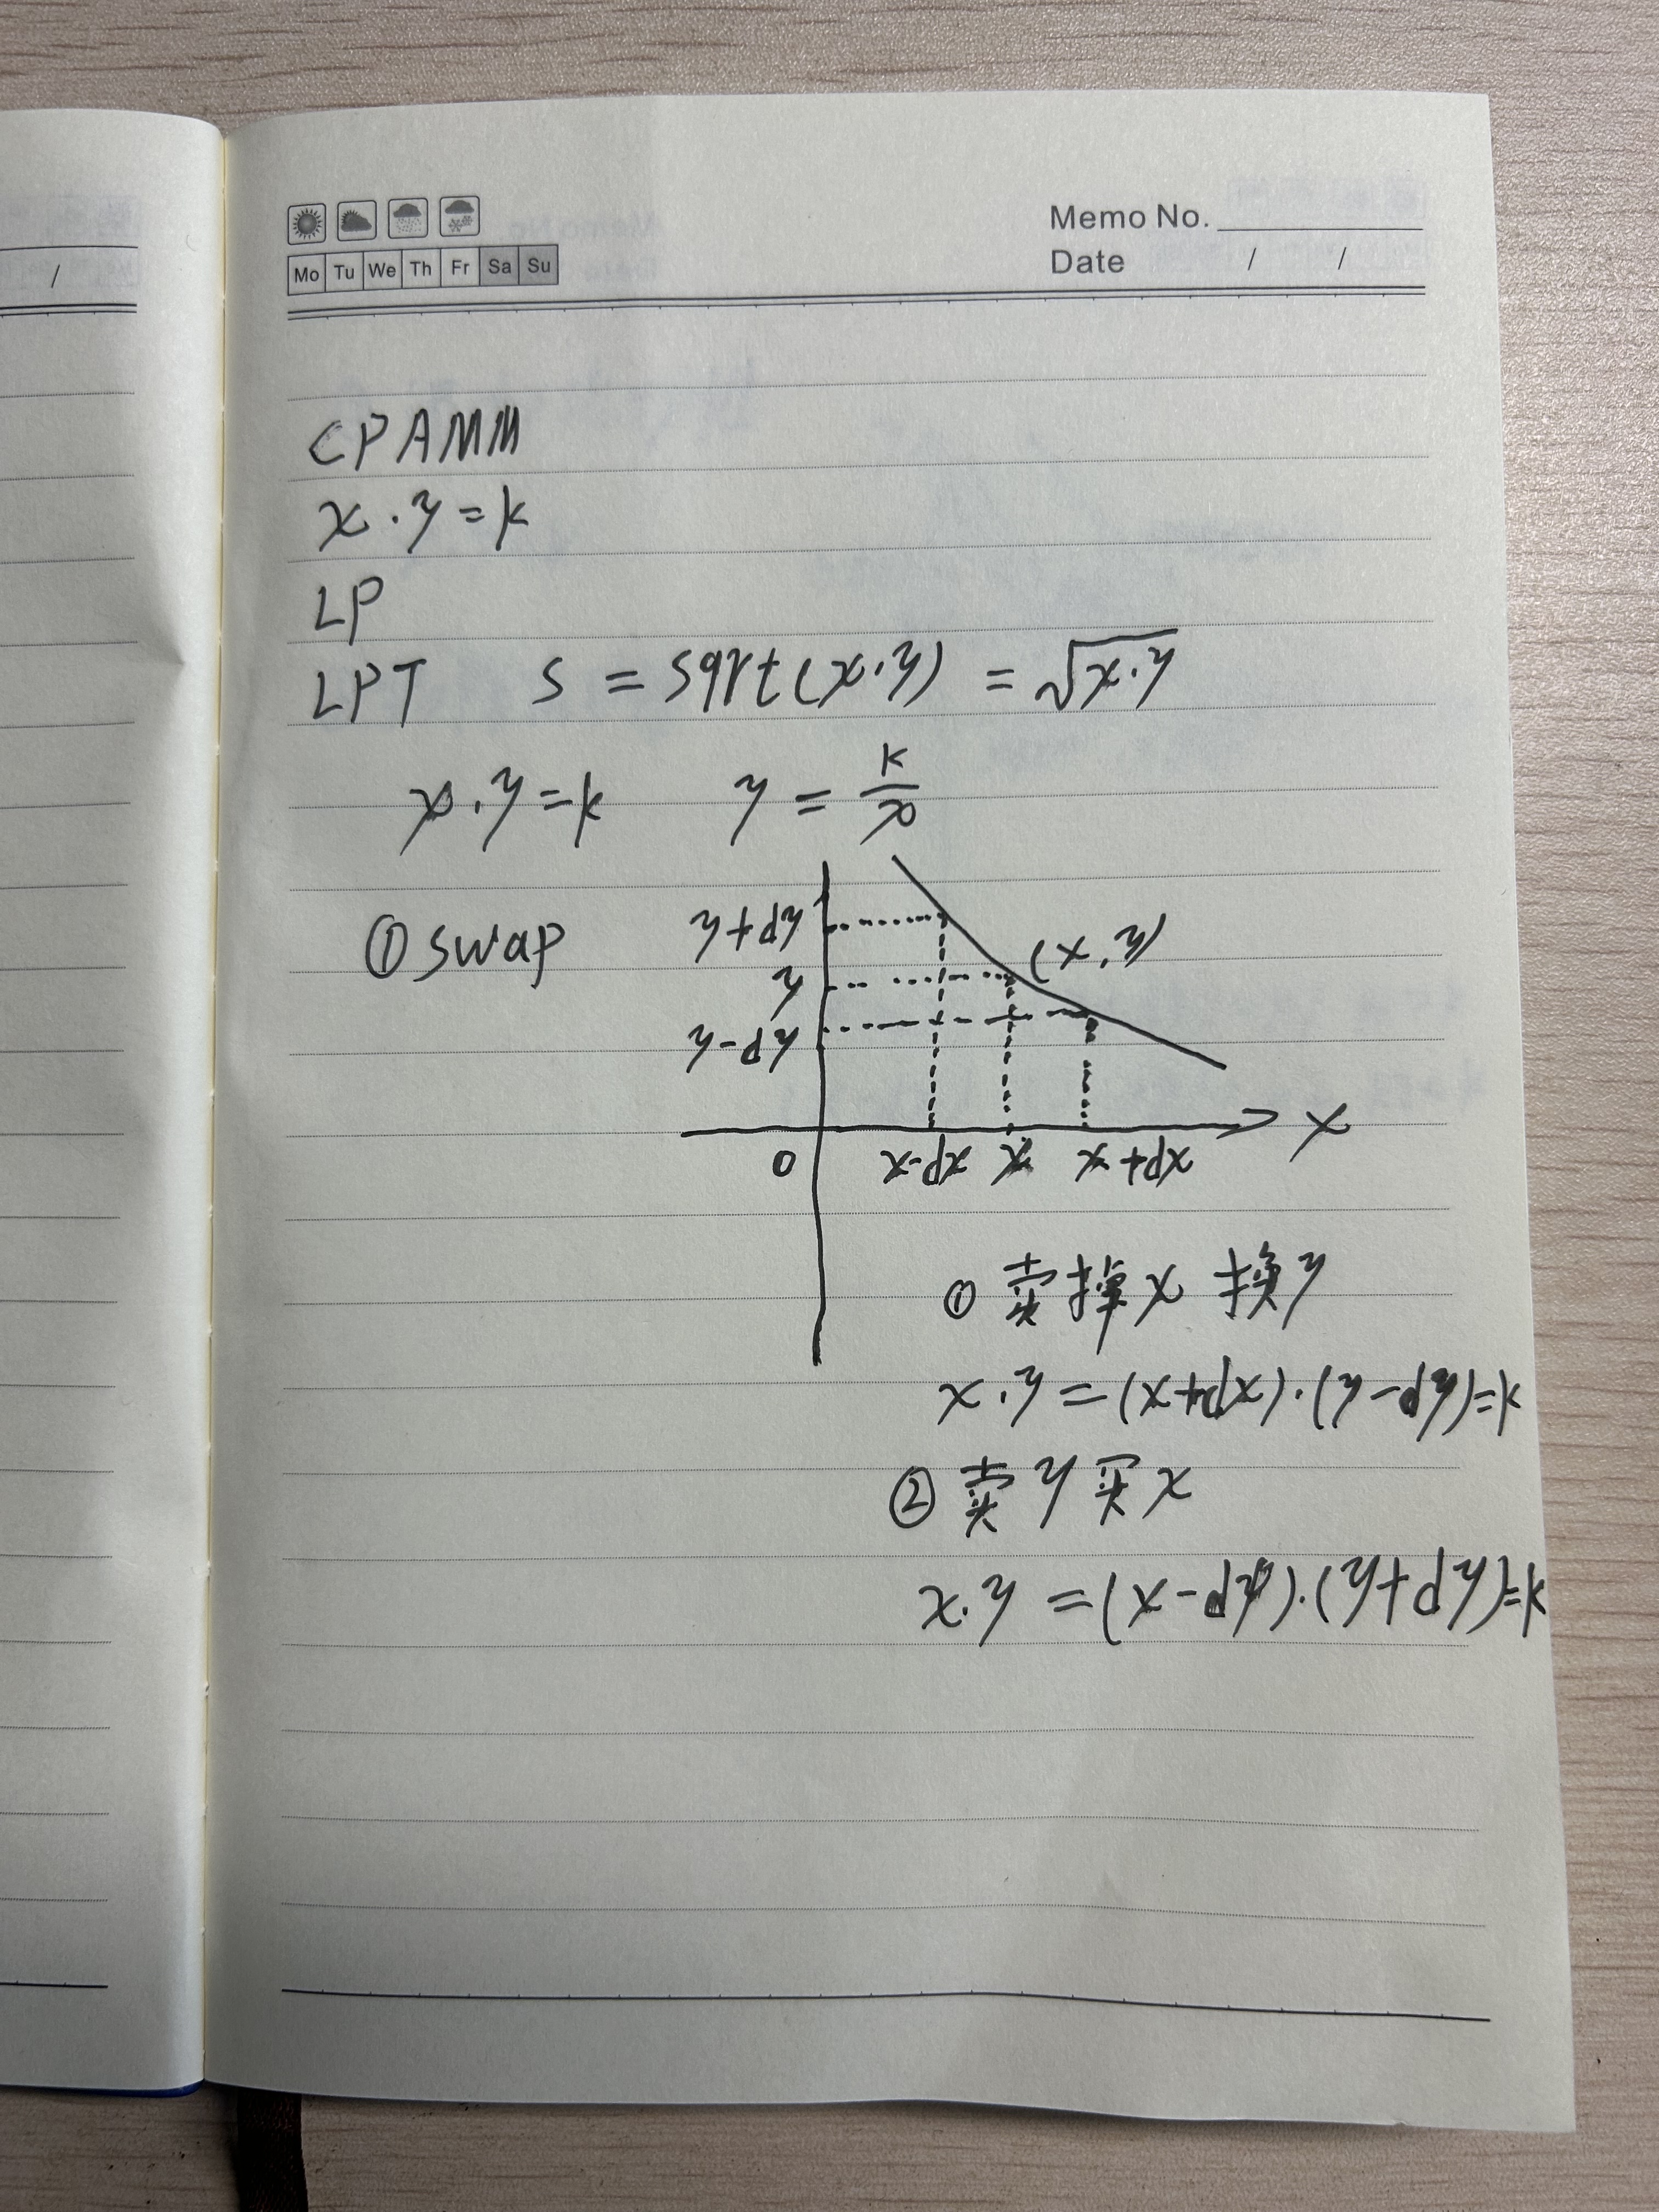 Memo No.
Mo Tu We Th Fr Sa Su
Date / /
/
CPAMM
x·y=k
LP
LPT S = sqrt(x·y) = √x·y
x·y=k y = k/x
① swap
y+dy
y
y-dy
(x,y)
X
0
x-dx x x+dx
① 卖掉x 换y
x·y=(x+dx)·(y-dy)=k
② 卖y买x
x·y=(x-dy)·(y+dy)=k